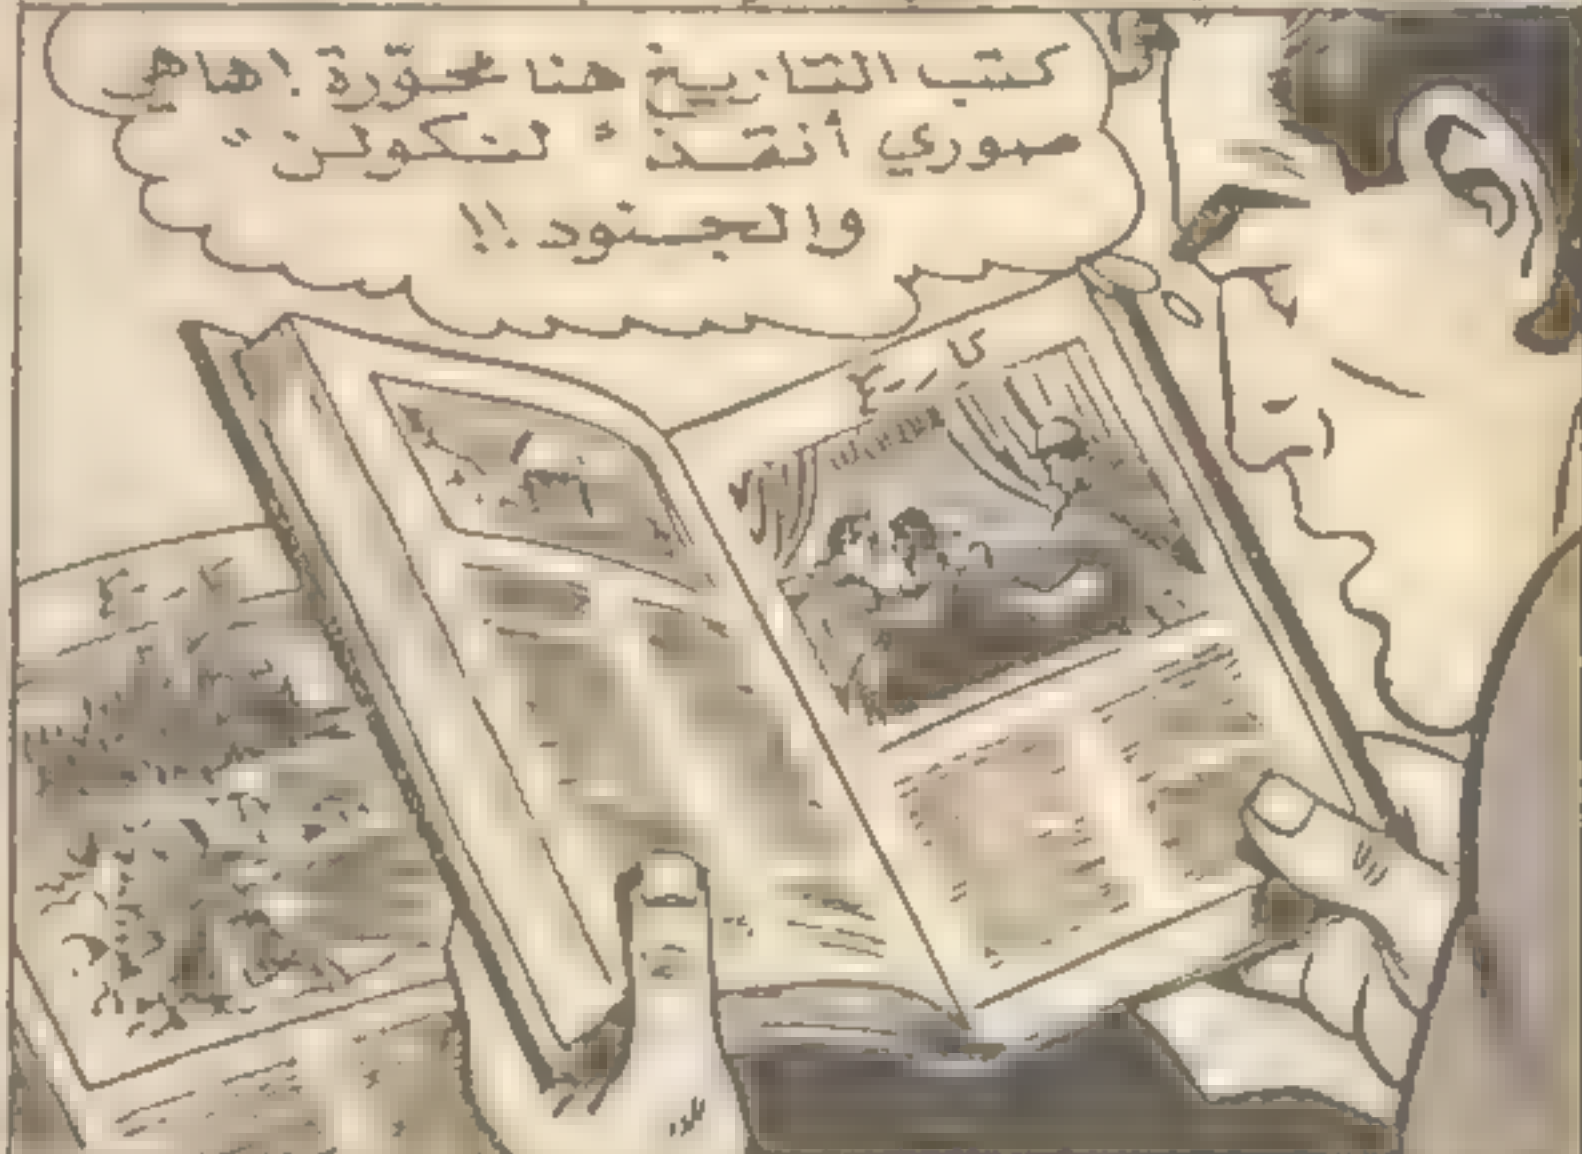 كتب التاريخ هنا محوّرة ! ها هي
صوري أنقذ " لنكولن "
والجنود !!